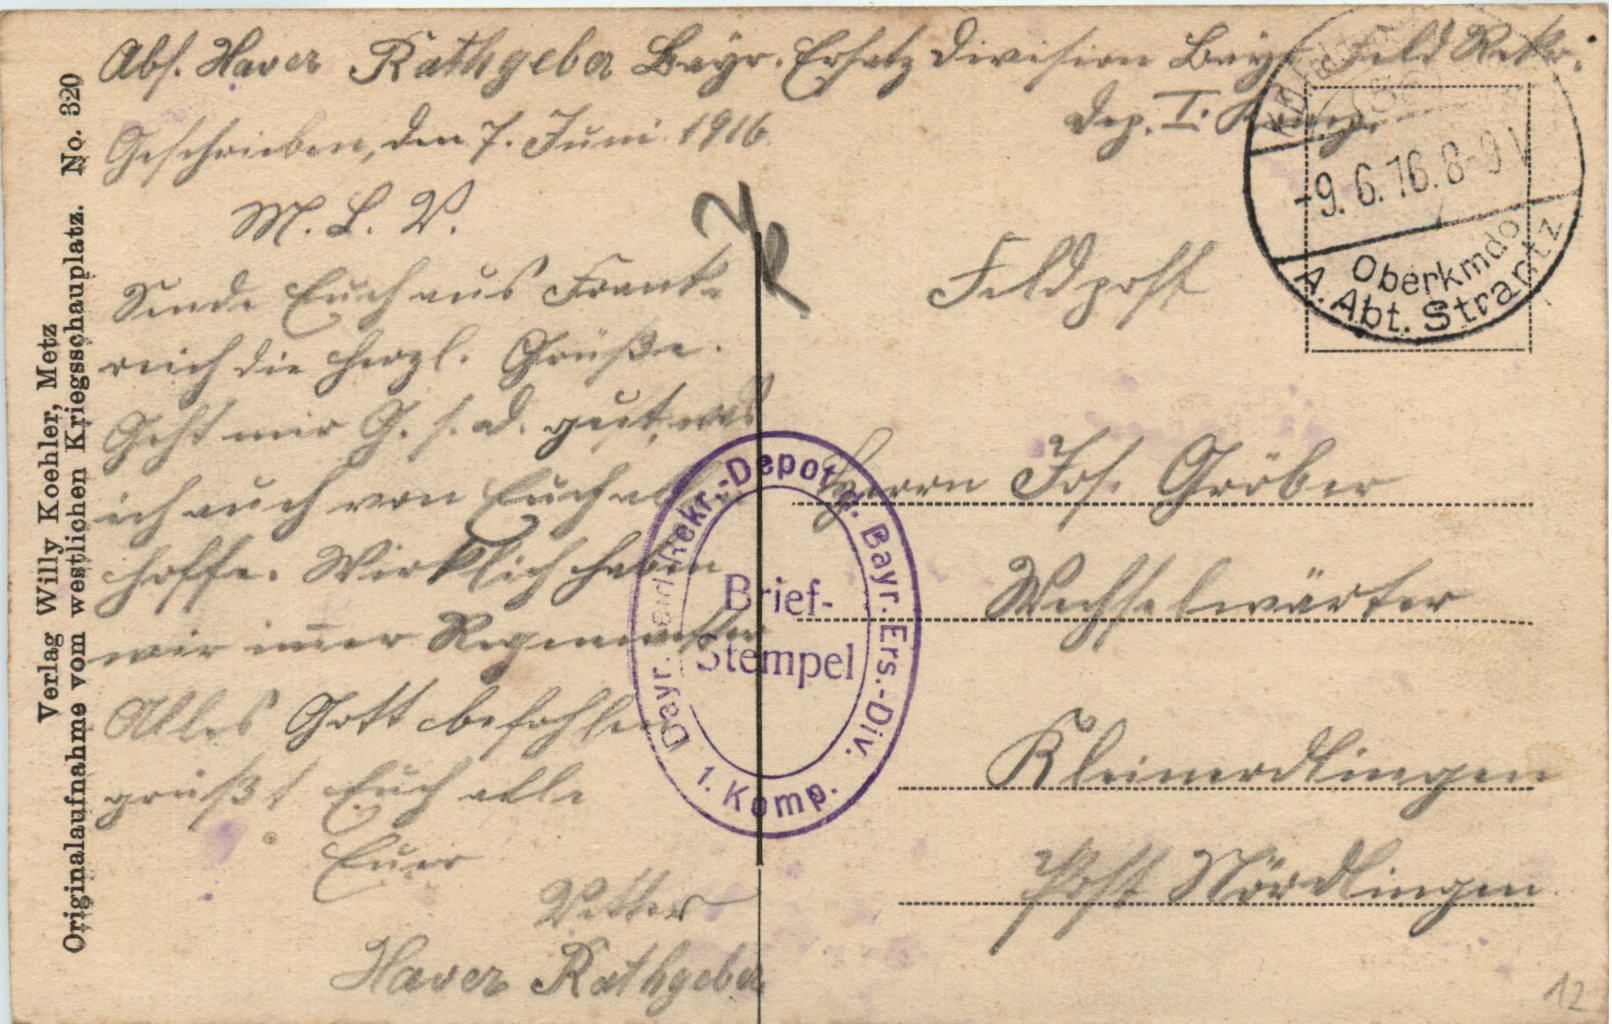 Abs. Xaver Rathgeber Bayr. Ersatz Division Bayr. Feld Rekr.
Dep. I. Komp.
Geschrieben, den 7. Juni 1916
M. L. V.
Sende Euch aus Frank-
reich die herzl. Grüße.
Geht mir G. s. d. gut, was
ich auch von Euch alle
hoffe. Wirklich haben
wir im̅er Regenwetter
Alles Gott befohlen
grüßt Euch alle
Euer
Vetter
Xaver Rathgeber
Feldpost
Herrn Jos. Gröber
Wechselwärter
Kleinerdlingen
Post Nördlingen
-9.6.16.8-9V
Oberkmdo
A. Abt. Strantz
Bayr. Feld-Rekr.-Depot d. Bayr. Ers.-Div.
1. Komp.
Brief-
Stempel
Verlag Willy Koehler, Metz
Originalaufnahme vom westlichen Kriegsschauplatz. No. 320
12